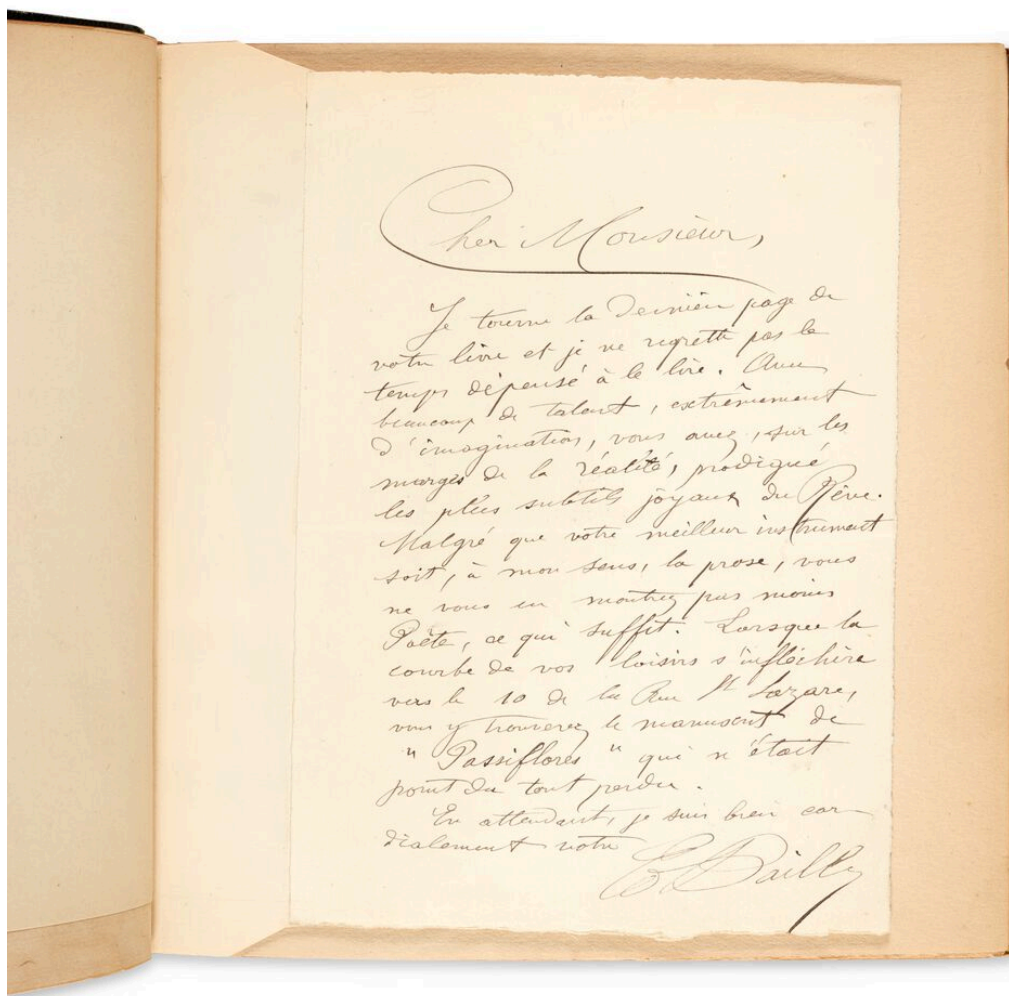 Cher Monsieur,
Je tourne la dernière page de
votre livre et je ne regrette pas le
temps dépensé à le lire. Avec
beaucoup de talent, extrêmement
d'imagination, vous avez, sur les
marges de la réalité, prodigué
les plus subtils joyaux du Rêve.
Malgré que votre meilleur instrument
soit, à mon sens, la prose, vous
ne vous en montrez pas moins
Poëte, ce qui suffit. Lorsque la
courbe de vos loisirs s'infléchira
vers le 10 de la Rue St Lazare,
vous y trouverez le manuscrit de
"Passiflores" qui n'était
point du tout perdu.
En attendant, je suis bien cor-
dialement votre
E Bailly